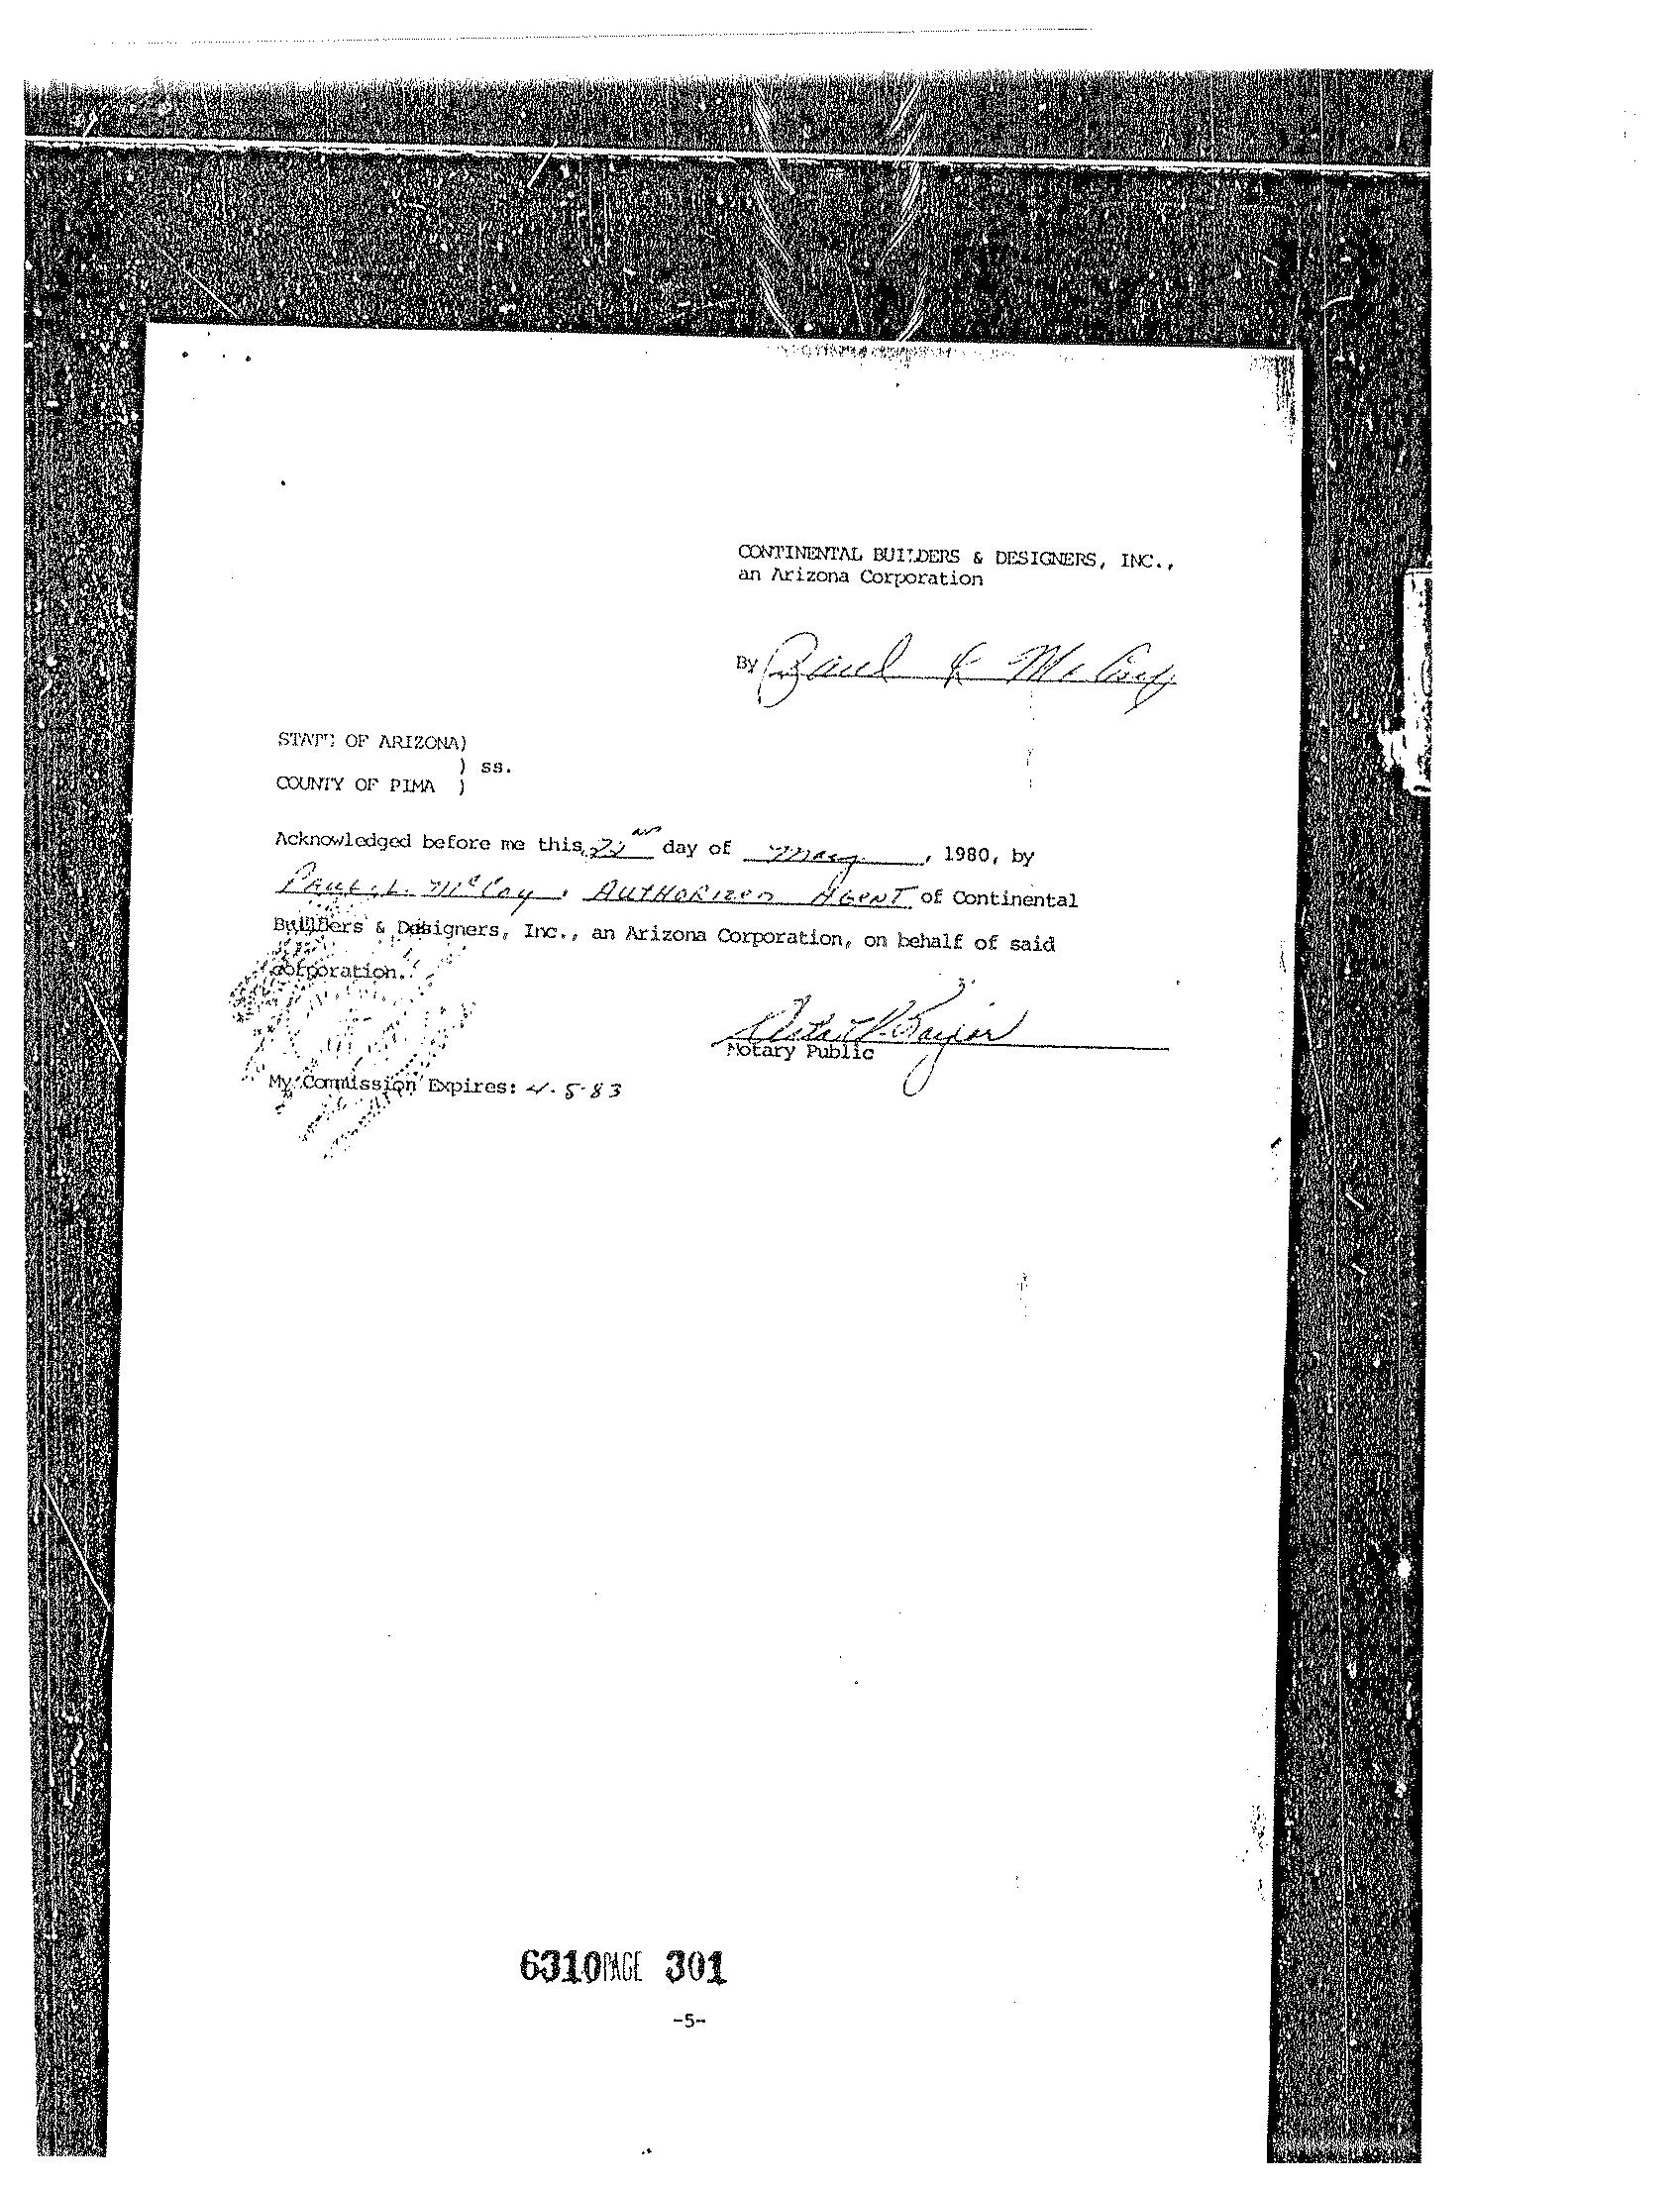 CONTINENTAL BUILDERS & DESIGNERS, INC.,
an Arizona Corporation
By Paul L McCoy
STATE OF ARIZONA)
) ss.
COUNTY OF PIMA )
Acknowledged before me this 22nd day of May, 1980, by
Paul L. McCoy, AUTHORIZED AGENT of Continental
Builders & Designers, Inc., an Arizona Corporation, on behalf of said
corporation.
Notary Public
My Commission Expires: 4-5-83
6310 PAGE 301
-5-